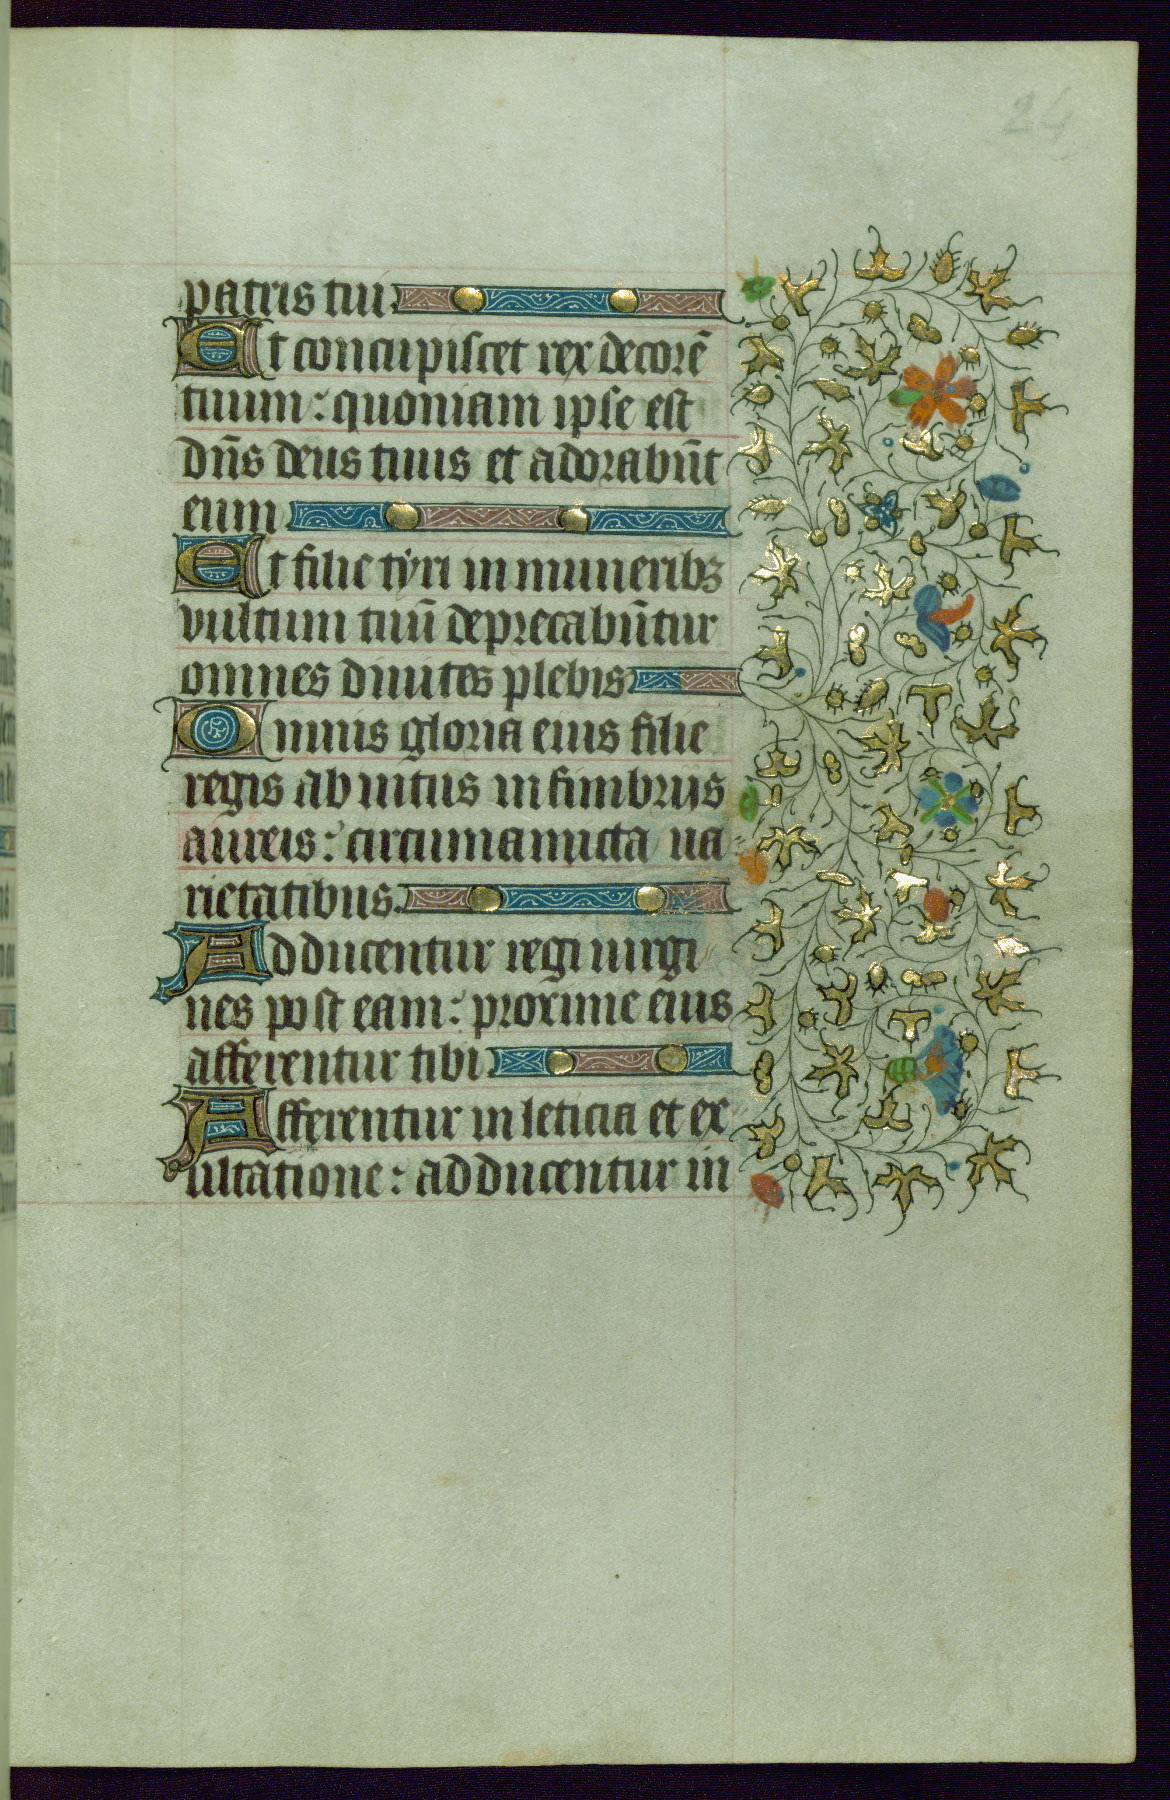 24
patris tui.
Et concupiscet rex decorē
tuum: quoniam ipse est
dn̄s deus tuus et adorabūt
eum
Et filie tyri in muneribꝫ
vultum tuū deprecabūtur
omnes diuites plebis
Omnis gloria eius filie
regis ab intus in fimbriis
aureis: circumamicta ua
rietatibus.
Adducentur regi uirgi
nes post eam: proxime eius
afferentur tibi
Afferentur in leticia et ex
ultatione: adducentur in